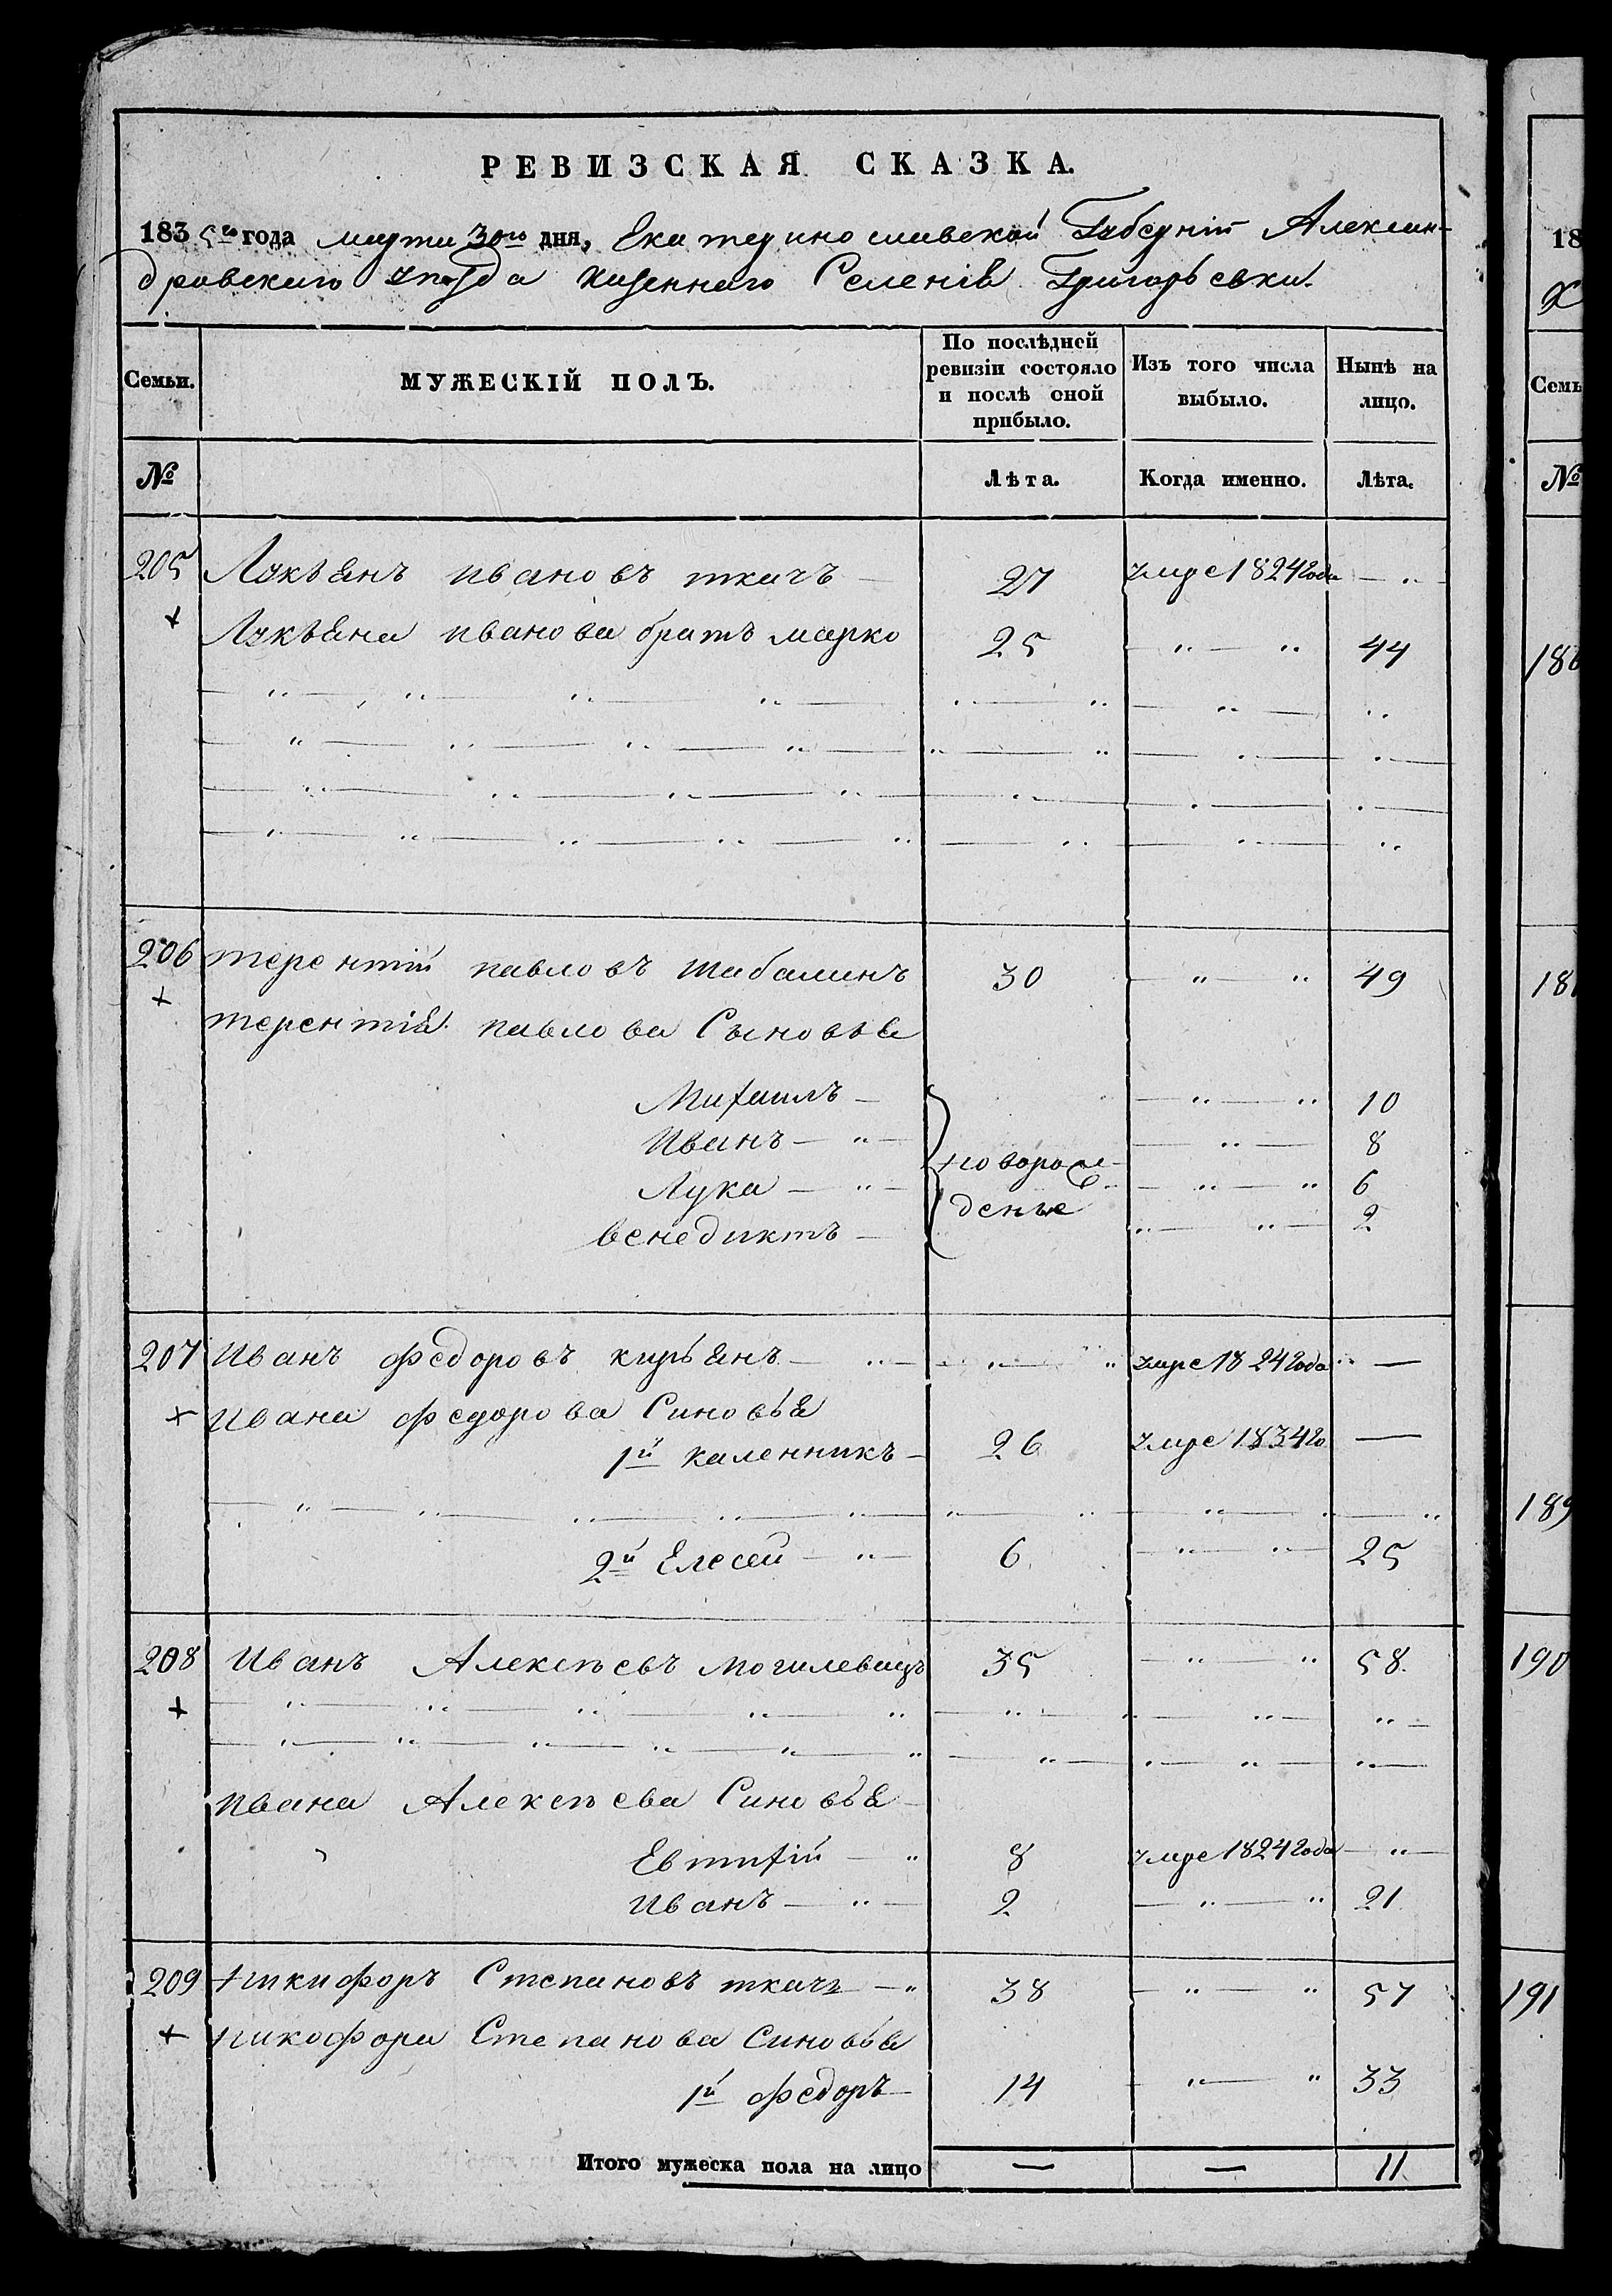 РЕВИЗСКАЯ СКАЗКА.
1835го года марта 30го дня, Екатеринославской Губерніи Алексан-
дровскаго уѣзда казеннаго Селенія Григорьевки.
Семьи. МУЖЕСКІЙ ПОЛЪ. По послѣдней ревизіи состояло и послѣ оной прибыло. Изъ того числа выбыло. Нынѣ на лицо.
№ Лѣта. Когда именно. Лѣта.
205 Лукьянъ ивановъ ткачъ — 27 умре 1824 года — „ —
+ Лукьяна иванова братъ марко 25 — „ — „ 44
206 терентій павловъ шабалинъ 30 — „ — „ 49
+ терентія павлова Сыновья
Михаилъ — — „ — „ 10
Иванъ — „ — — „ — 8
новорож-
Лука — „ — — „ — „ 6
деные
венедиктъ — „ — „ — 2
207 Иванъ федоровъ кирьянъ — „ — „ — „ умре 1824 года „ —
+ ивана федорова Синовья
1й каленникъ — 26 умре 1834 го —
2й Елесей — „ — 6 — „ — „ — 25
208 Иванъ Алексѣевъ могилевецъ 35 — „ — „ 58.
+
ивана Алексѣева Синовья —
Евтифій — „ 8 умре 1824 года — „ —
Иванъ — „ — 2 — „ — „ 21
209 никифоръ Степановъ ткачъ — „ 38 — „ — „ 57
+ никофора Степанова Синовья
1й федоръ — 14 — „ — „ 33
Итого мужеска пола на лицо — — 11
18
Семь
№
189
190
191